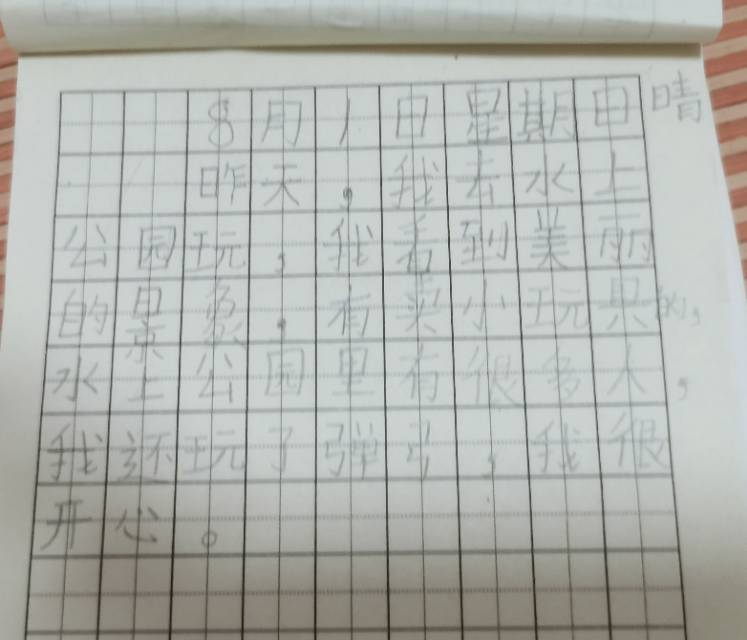 8月1日星期日 晴
昨天，我去水上
公园玩，我看到美丽
的景象，有卖小玩具的，
水上公园里有很多人，
我还玩了弹弓，我很
开心。